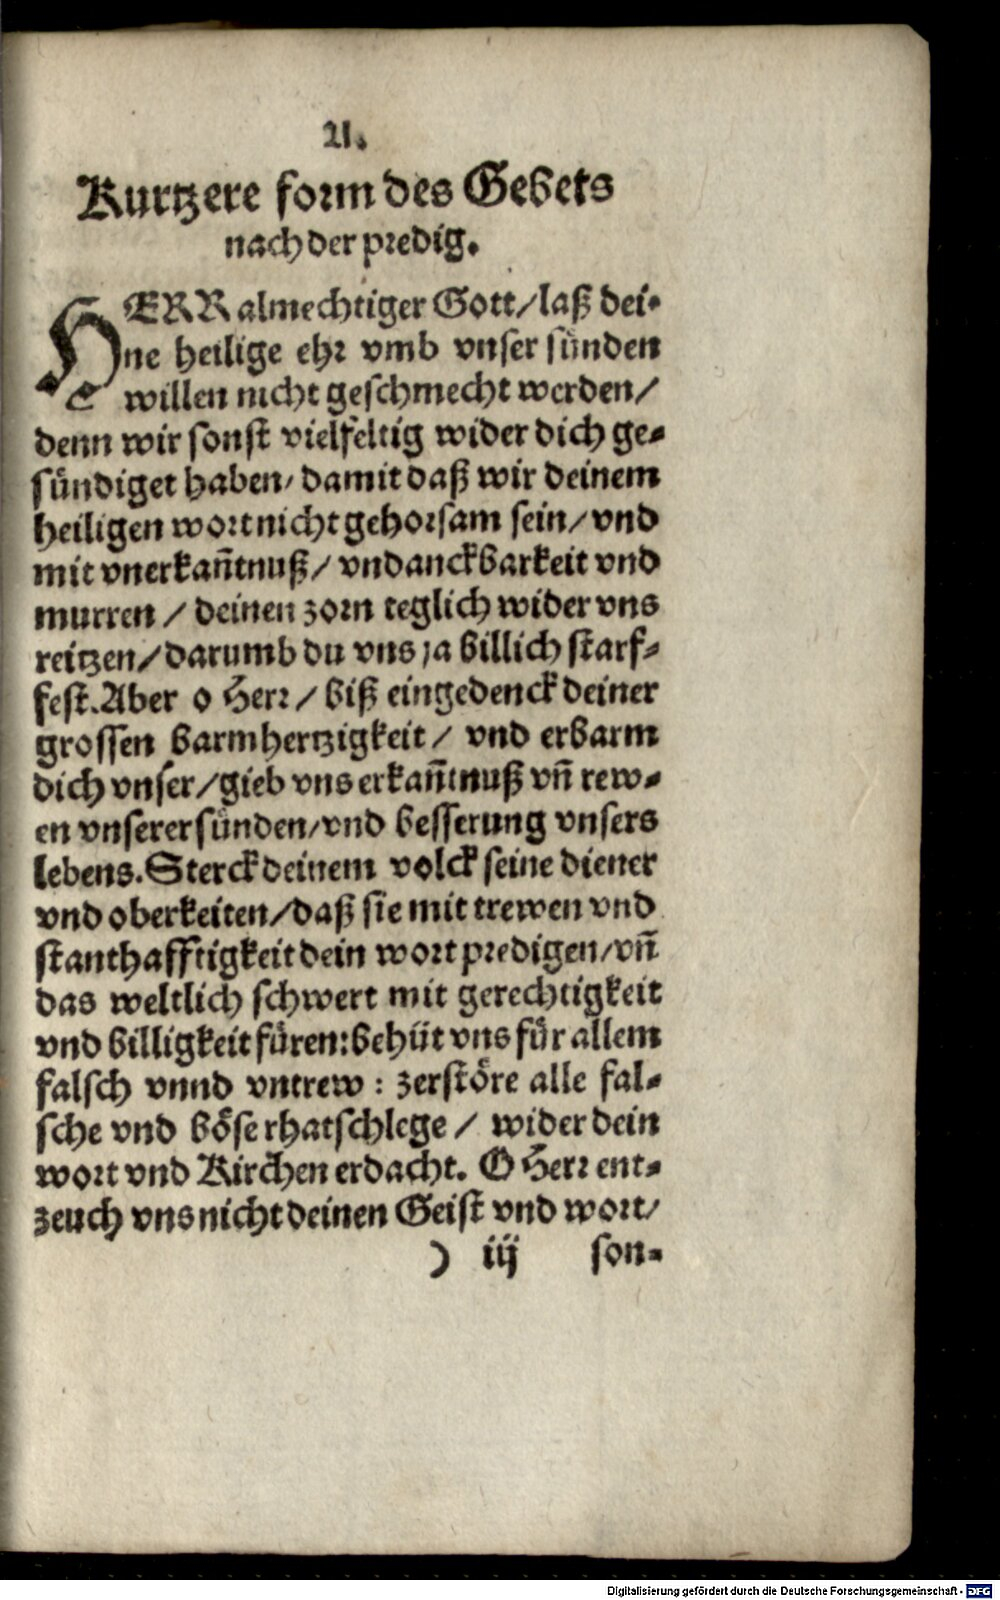 21.
Kurtzere form des Gebets
nach der predig.
HERR almechtiger Gott/laß dei-
ne heilige ehr vmb vnser sünden
willen nicht geschmecht werden/
denn wir sonst vielfeltig wider dich ge-
sündiget haben/damit daß wir deinem
heiligen wort nicht gehorsam sein/vnd
mit vnerkañtnuß/vndanckbarkeit vnd
murren/deinen zorn teglich wider vns
reitzen/darumb du vns ja billich starf-
fest.Aber o Herr/biß eingedenck deiner
grossen barmhertzigkeit/vnd erbarm
dich vnser/gieb vns erkañtnuß vñ rew-
en vnserer sünden/vnd besserung vnsers
lebens.Sterck deinem volck seine diener
vnd oberkeiten/daß sie mit trewen vnd
stanthafftigkeit dein wort predigen/vñ
das weltlich schwert mit gerechtigkeit
vnd billigkeit füren:behüt vns für allem
falsch vnnd vntrew:zerstöre alle fal-
sche vnd böse rhatschlege/wider dein
wort vnd Kirchen erdacht. O Herr ent-
zeuch vns nicht deinen Geist vnd wort/
) iij son-
Digitalisierung gefördert durch die Deutsche Forschungsgemeinschaft - DFG